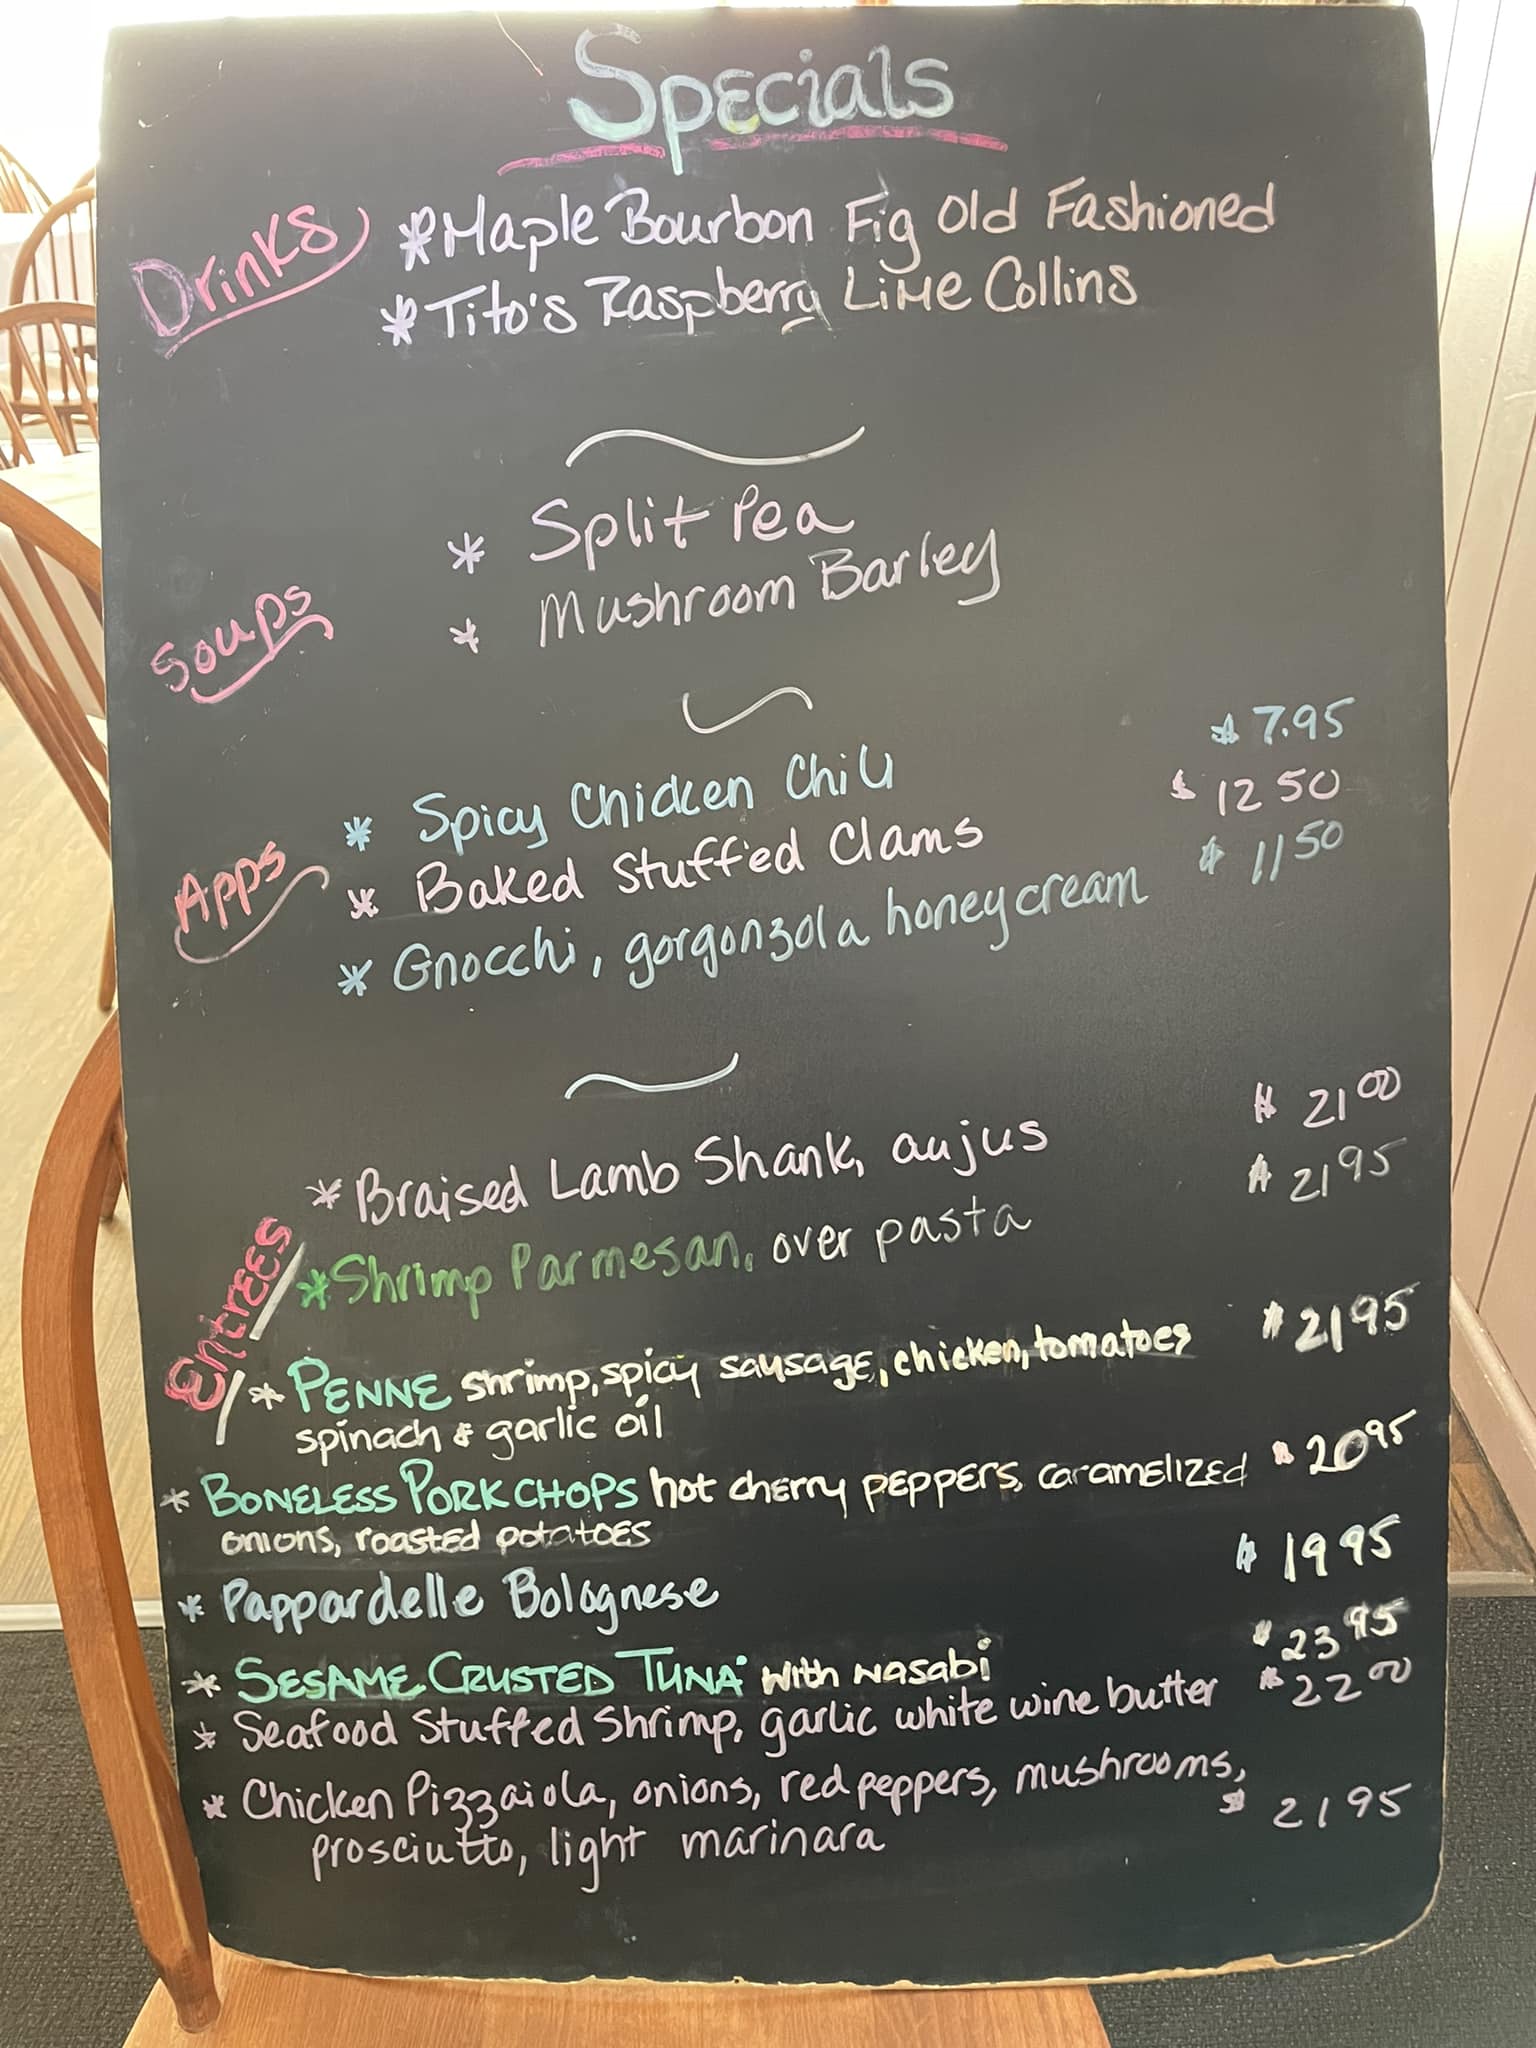 Specials
Drinks
* Maple Bourbon Fig Old Fashioned
* Tito's Raspberry Lime Collins
Soups
* Split Pea
* Mushroom Barley
Apps
* Spicy Chicken Chili $7.95
* Baked Stuffed Clams $12 50
* Gnocchi, gorgonzola honey cream $11 50
Entrees
* Braised Lamb Shank, au jus $21 00
* Shrimp Parmesan, over pasta $21 95
* PENNE shrimp, spicy sausage, chicken, tomatoes $21 95
spinach & garlic oil
* BONELESS PORK CHOPS hot cherry peppers, caramelized $20 95
onions, roasted potatoes
* Pappardelle Bolognese $19 95
* SESAME CRUSTED TUNA with wasabi $23 95
* Seafood Stuffed Shrimp, garlic white wine butter $22 00
* Chicken Pizzaiola, onions, red peppers, mushrooms,
prosciutto, light marinara $21 95